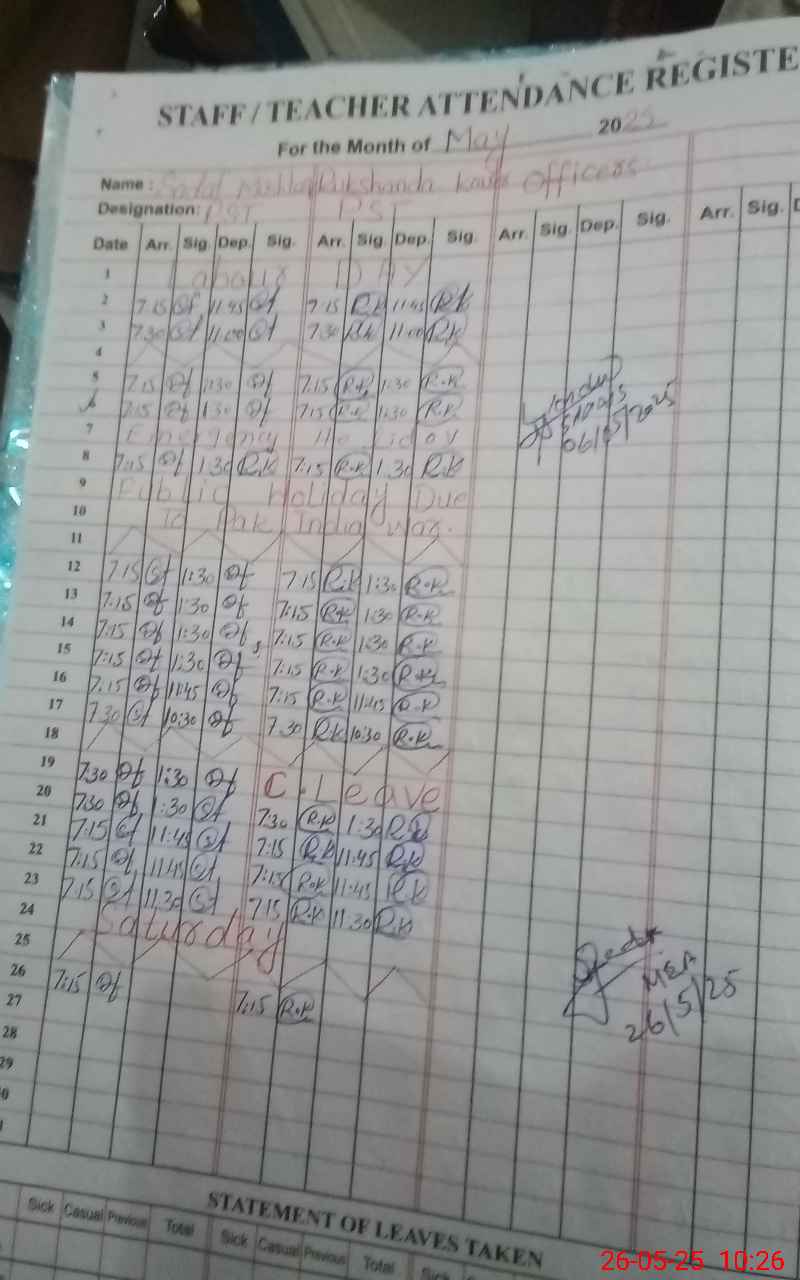 STAFF / TEACHER ATTENDANCE REGISTE
For the Month of May 2025
Name : Rukshanda Officers
Designation: PST PST
Date Arr. Sig. Dep. Sig. Arr. Sig. Dep. Sig. Arr. Sig. Dep. Sig. Arr. Sig. D
1 Labour DAY
2 7:15 11:45 7:15 R.K 11:45 R.K
3 7:30 11:00 7:30 R.K 11:00 R.K
4
5 7:15 1:30 7:15 R.K 1:30 R.K
6 7:15 1:30 7:15 R.K 1:30 R.K
06/05/2025
7 Emergency Holiday
8 7:15 1:30 R.K 7:15 R.K 1:30 R.K
9 Public Holiday Due
10 To Pak India war.
11
12 7:15 1:30 7:15 R.K 1:30 R.K
13 7:15 1:30 7:15 R.K 1:30 R.K
14 7:15 1:30 7:15 R.K 1:30 R.K
15 7:15 1:30 7:15 R.K 1:30 R.K
16 7:15 11:45 7:15 R.K 11:45 R.K
17 7:30 10:30 7:30 R.K 10:30 R.K
18
19 7:30 1:30 C. Leave
20 7:30 1:30 7:30 R.K 1:30 R.K
21 7:15 11:45 7:15 R.K 11:45 R.K
22 7:15 11:45 7:15 R.K 11:45 R.K
23 7:15 11:30 7:15 R.K 11:30 R.K
24 Saturday
25
26 7:15 7:15 R.K
MEA
26/5/25
27
28
29
0
STATEMENT OF LEAVES TAKEN
Sick Casual Previous Total Sick Casual Previous Total Sick
26-05-25 10:26